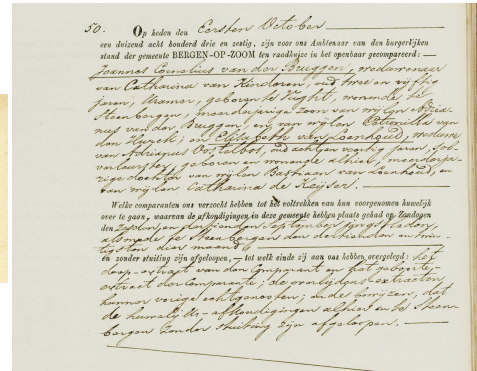 50. Op heden den Eersten October
een duizend acht honderd drie en zestig, zijn voor ons Ambtenaar van den burgerlijken
stand der gemeente BERGEN-OP-ZOOM ten raadhuize in het openbaar gecompareerd:
Joannes Cornelius van der Bruggen, weduwenaar
van Catharina van Kinderen, oud twee en vijftig
jaren, Kramer, geboren te Vught, wonende te
Steenbergen, meerderjarige zoon van wijlen Adria-
nus van der Bruggen, en van wijlen Petronella van
den Hurck; en Elizabeth van Loenhoud, weduwe
van Adrianus Oostelbos, oud acht en veertig jaren,
geboren en wonende alhier, meerderja-
rige dochter van wijlen Bastiaan van Loenhoud, en
van wijlen Catharina de Keijser.
Welke comparanten ons verzocht hebben tot het voltrekken van hun voorgenomen huwelijk
over te gaan, waarvan de afkondigingen in deze gemeente hebben plaats gehad op Zondagen
den en September jongstleden,
alsmede te Steenbergen den dertienden en twin-
tigsten dier maand,
en zonder stuiting zijn afgeloopen, — tot welk einde zij aan ons hebben overgelegd: het
doop-extract van den Comparant en het geboorte-
extract der Comparante; de overlijdens-extracten
hunner vorige echtgenooten; en de bewijzen, dat
de huwelijks-afkondigingen alhier en te Steen-
bergen zonder stuiting zijn afgeloopen.